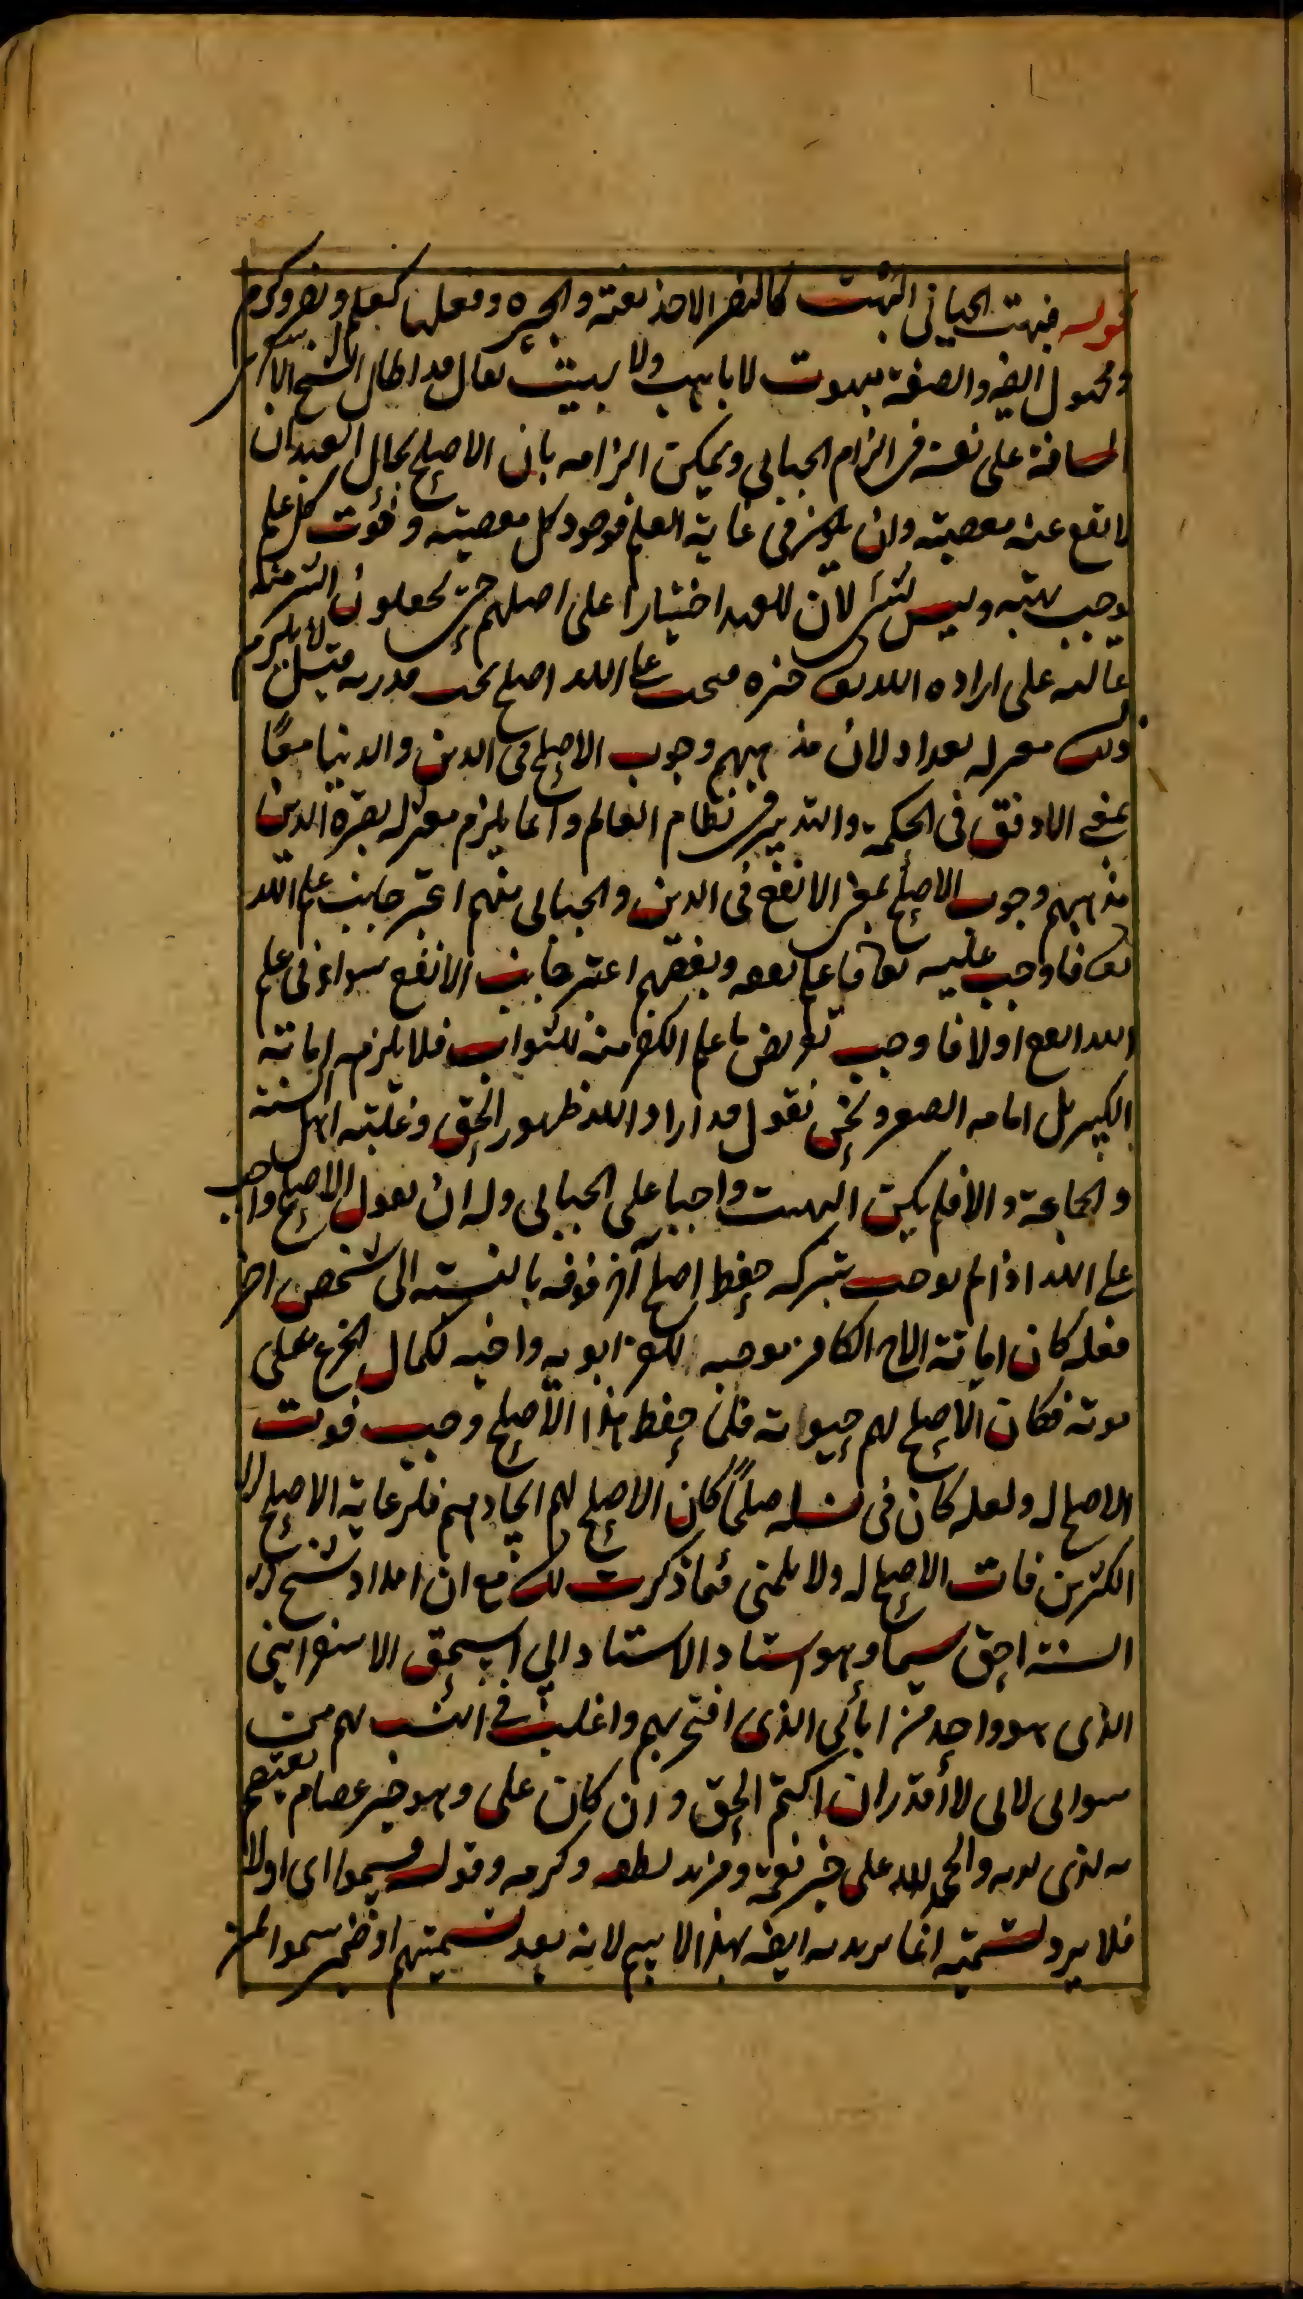 قوله فبهت الجبائي البهت كالنصر الاخذ بغتة والحيرة وفعلها كعلم ونصر وكرم
ومجهول ايضه والصفة مبهوت لا باهت ولا بهيت يقال قد اطال الشيخ الاشعري
المسافة على نفسه في الزام الجبائي ويمكن الزامه بان الاصلح بحال العبد ان
لا تقع عنه معصية وان في غاية العلم فوجود كل معصية وفوت كل علم
يوجب بهته وليس لان للعبد اختيارا على اصلهم حتى يجعلون
غالبه على ارادة الله تعالى علي الله اصلح تحت قدرته قيل لا يلزم
ذلك معتزلة بغداد لان مذهبهم وجوب الاصلح في الدين والدنيا معا
بمعنى الاوفق في الحكمة والتدبير في نظام العالم وانما يلزم معتزلة بصرة الذين
مذهبهم وجوب الاصلح بمعنى الانفع في الدين والجبائي منهم اعتبر جانب علم الله
تعالى فاوجب عليه تعالى ما علم نفعه وبعضهم اعتبر جانب الانفع سواء في علم
الله انفع اولا فاوجب تعريض ما علم الكفر منه للثواب فلا يلزمه اماتة
الكبير بل اماتة الصغير ونحن نقول قد اراد الله ظهور الحق وغلبة اهل السنة
والجماعة والا فلم يكن البهت واجبا على الجبائي وله ان يقول الاصلح واجب
على الله اذا لم يوجب تركه حفظ اصلح آخر فوقه بالنسبة الى شخص اخر
فلعله كان اماتة الاخ الكافر موجبه لكفر ابويه واخيه لكمال الجزع على
موته فكان الاصلح لهم حيوته فلما حفظ هذا الاصلح وجب فوت
الاصلح له ولعله كان في نسله صلحاء كان الاصلح لهم ايجادهم فلرعاية الاصلح
الكثرين فات الاصلح له ولا يلمني فيما ذكرت لك مع ان امداد شيخ
السنة احق سيما وهو استاد الاستاد ابي اسحق الاسفرايني
الذي هو واحد من ابائي الذي افتخر بهم واغلب في النسب بهم من
سوائي لاني لا اقدر ان اكتم الحق وان كان علي وهو خير عصام يعتصم
به لذي لديه والحمد لله على خير نعمه ومزيد لطفه وكرمه وقوله فسموا اي اولا
فلا يرد تسمية اتباعه ايضه بهذا الاسم لانه بعد تسميتهم او ضمير سموا لمن